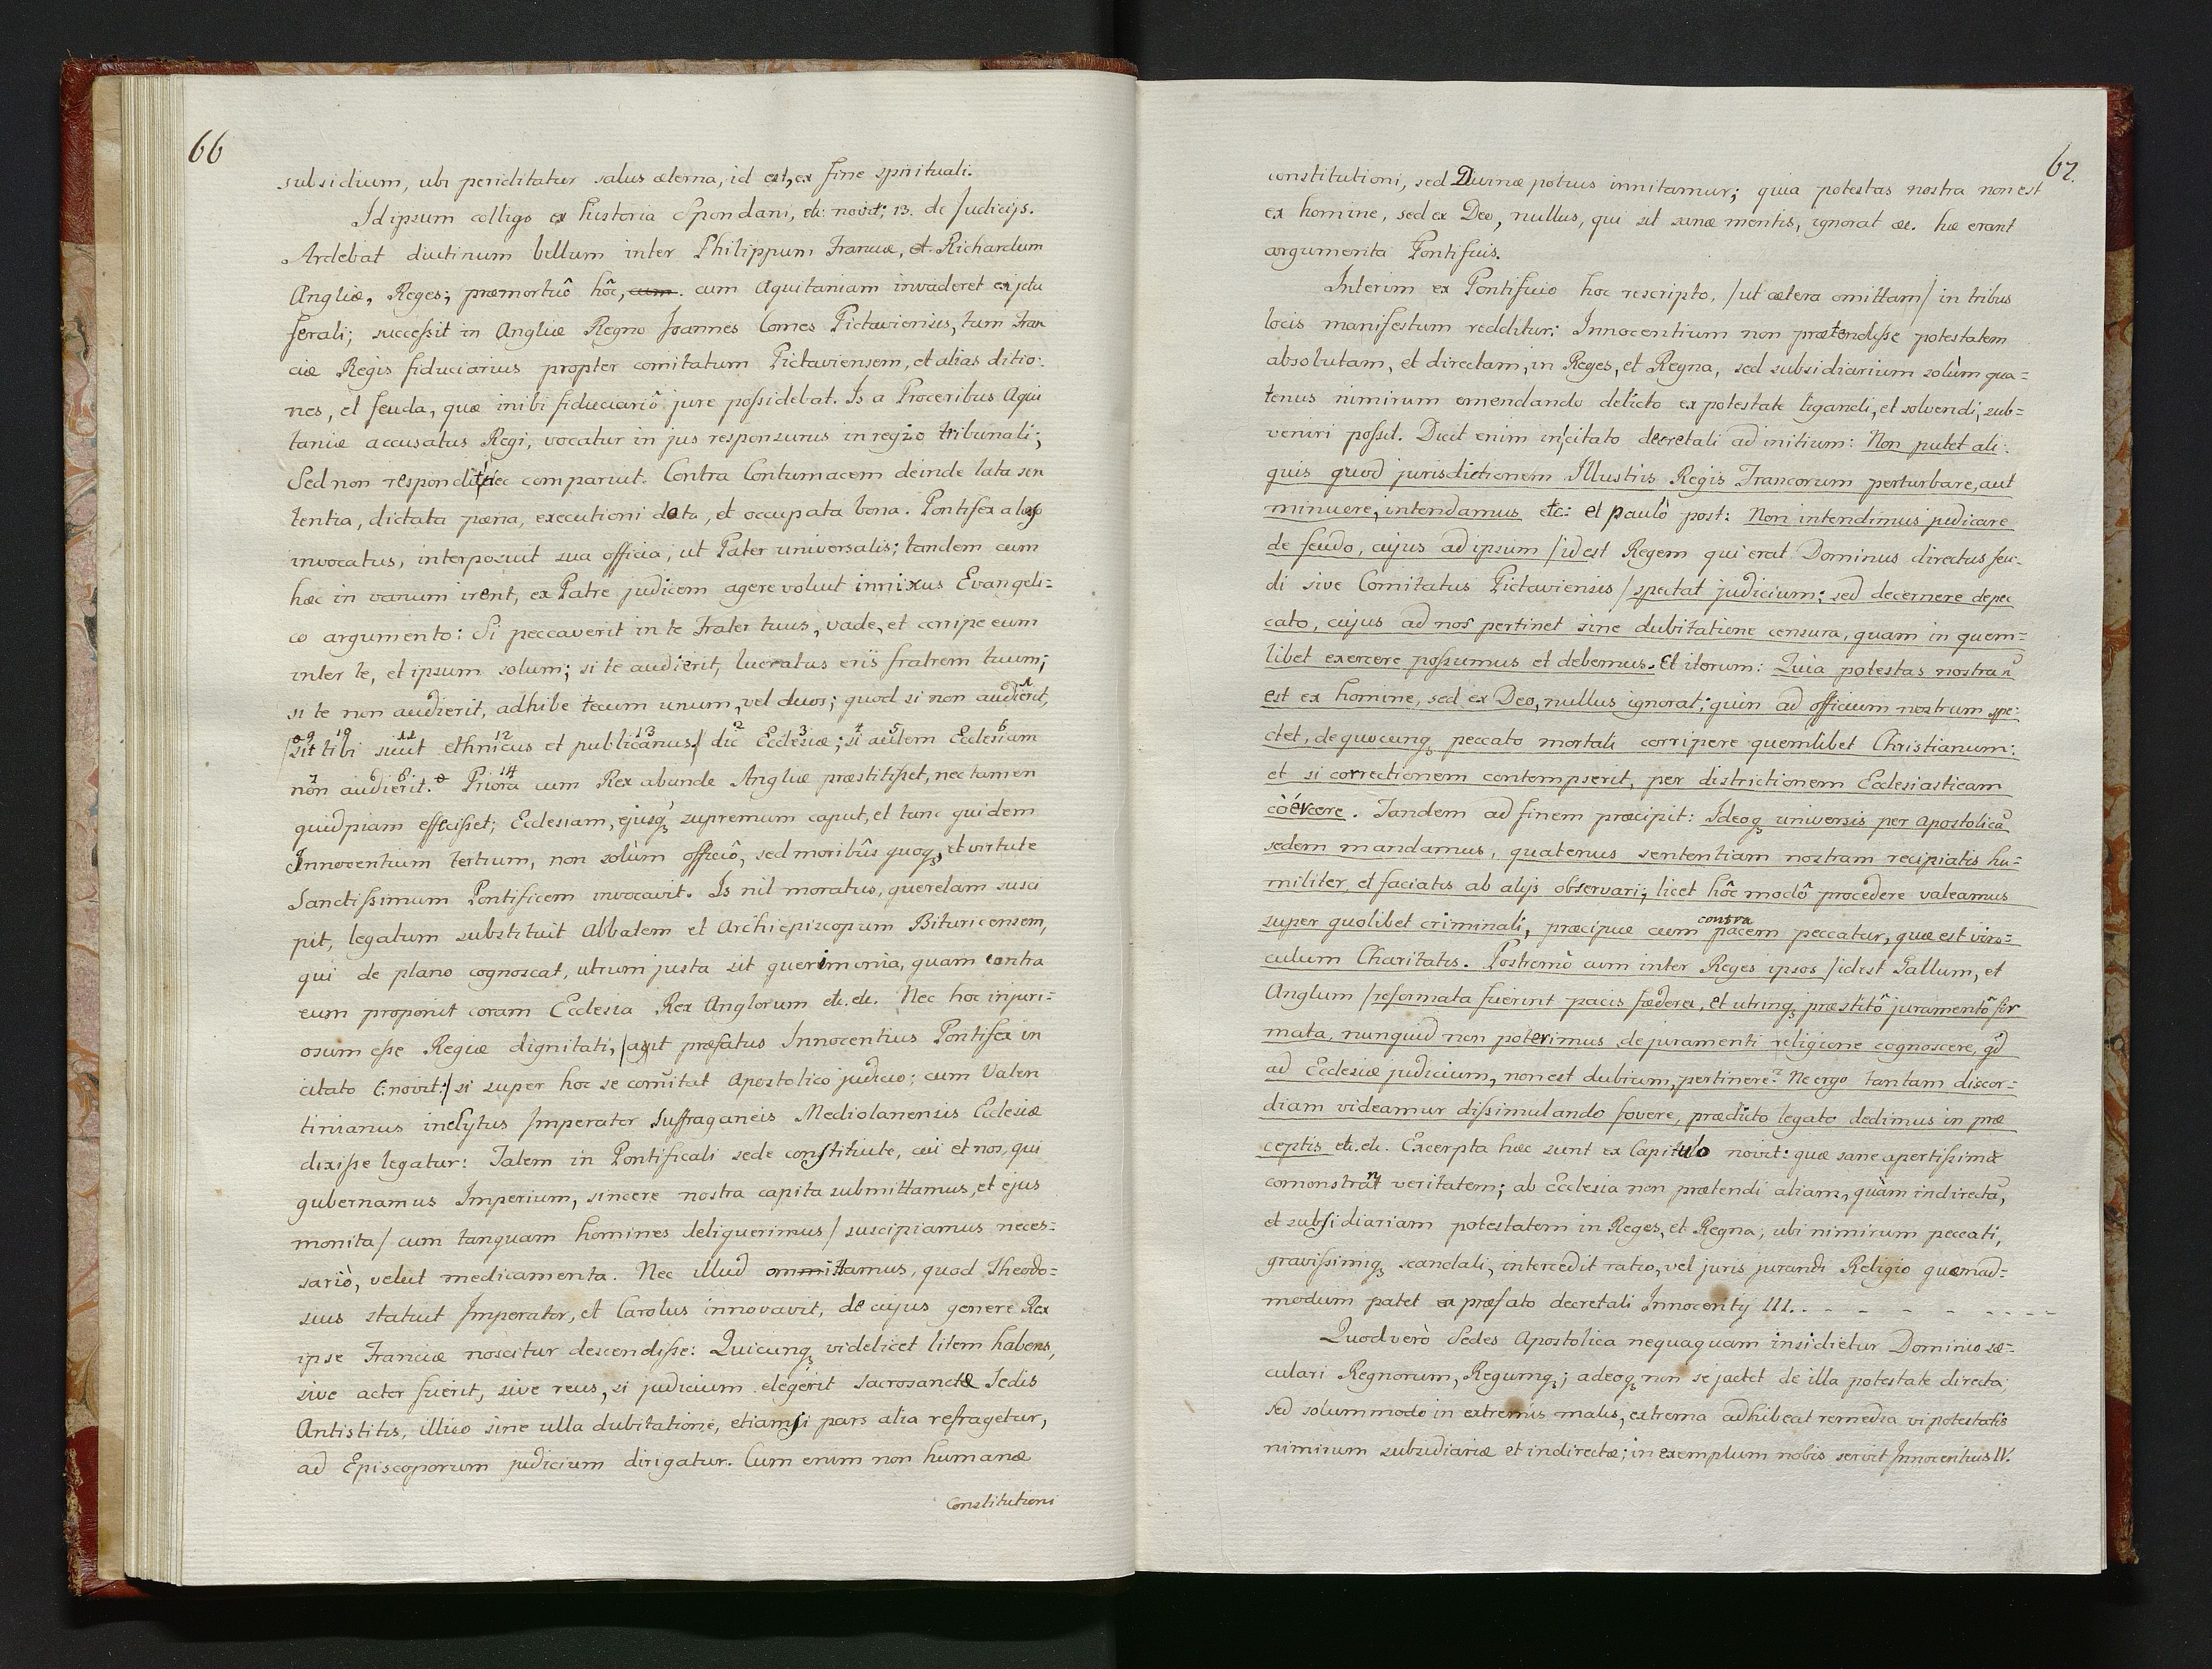 66
subsidium, ubi periclitatur salus æterna, id est, ex fine spirituali.
Id ipsum colligo ex historia Spondani, etc: novit; 13. de Judicijs.
Ardebat diutinum bellum inter Philippum Franciæ, et Richardum
Angliæ, Reges; præmortuô hôc, cum. cum Aquitaniam invaderet ex jctu
ferali; successit in Angliæ Regno Joannes Comes Pictaviensis, tum Fran
ciæ Regis fiduciarius propter comitatum Pictaviensem, et alias ditio:
nes, et feuda, quæ inibi fiduciariô jure possidebat. Is a Proceribus Aqui
taniæ accusatus Regi, vocatur in jus responsurus in regio tribunali;
Sed non respondit, nec comparuit. Contra Contumacem deinde lata sen
tentia, dictata pæna, executioni data, et occupata bona. Pontifex
invocatus, interposuit sua officia, ut Pater universalis; tandem cum
hæc in vanum irent, ex Patre judicem agere voluit innixus Evangeli=
co argumento: Si peccaverit in te Frater tuus, vade, et corripe eum
inter te, et ipsum solum; si te audierit, lucratus eris fratrem tuum;
si te non audierit, adhibe tecum unum, vel duos; quod si non audierit,
/sit tibi sicut ethnicus et publicanus./ dic Ecclesiæ; si autem Ecclesiam
non audierit. Priora cum Rex abunde Angliæ præstitisset, nec tamen
quidpiam effecisset; Ecclesiam, ejusq3 supremum caput, et tunc quidem
Innocentium tertium, non solùm officiô, sed moribûs quoq3, et virtute
Sanctissimum Pontificem invocavit. Is nil moratus, querelam susci
pit, legatum substituit Abbatem et Archiepiscopum Bituricensem,
qui de plano cognoscat, utrum justa sit querimonia, quam contra
eum proponit coram Ecclesia Rex Anglorum etc. etc. Nec hoc injuri=
osum esse Regiæ dignitati, /ait præfatus Innocentius Pontifex in
citato C: novit:/ si super hoc se comitat Apostolico judicio; cum Valen
tinianus inclytus Imperator Suffraganeis Mediolanensis Ecclesiæ
dixisse legatur: Talem in Pontificali sede constituite, cui et nos, qui
gubernamus Imperium, sincere nostra capita submittamus, et ejus
monita / cum tanquam homines deliquerimus / suscipiamus neces=
sariò, velut medicamenta. Nec illud omittamus, quod Theodo=
sius statuit Imperator, et Carolus innovavit, de cujus genere Rex
ipse Franciæ noscitur descendisse: Quicunq3 videlicet litem habens,
sive actor fuerit, sive reus, si judicium elegerit sacrosanctæ Sedis
Antistitis, illico sine ulla dubitatione, etiamsi pars alia refragetur,
ad Episcoporum judicium dirigatur. Cum enim non humanæ
Constitutioni
67.
constitutioni, sed Divinæ potius innitamur; quia potestas nostra non est
ex homine, sed ex Deo, nullus, qui sit sanæ mentis, ignorat æc. hæ erant
argumenta Pontificis.
Interim ex Pontificio hoc rescripto, /ut cætera omittam/ in tribus
locis manifestum redditur: Innocentium non prætendisse potestatem
absolutam, et directam, in Reges, et Regna, sed subsidiarium solùm qua=
tenus nimirum emendando delicto ex potestate ligandi, et solvendi, sub=
veniri possit. Dicit enim in citato decretali ad initium: Non putet ali:
quis quod jurisdictionem Illustris Regis Francorum perturbare, aut
minuere, intendamus etc: et paulò post: Non intendimus judicare
de feudo, cujus ad ipsum /id est Regem qui erat Dominus directus feu:
di sive Comitatus Pictaviensis / spectat judicium; sed decernere de pec
cato, cujus ad nos pertinet sine dubitatione censura, quam in quem=
libet exercere possumus et debemus. Et iterum: Quia potestas nostra n̄
est ex homine, sed ex Deo, nullus ignorat; quin ad officium nostrum spe:
ctet, de quocunq3 peccato mortali corripere quemlibet Christianum:
et si correctionem contempserit, per districtionem Ecclesiasticam
coërcere. Tandem ad finem præcipit: Ideoq3 universis per Apostolicā
sedem mandamus, quatenus sententiam nostram recipiatis hu=
militer, et faciatis ab alijs observari; licet hôc modô procedere valeamus
super quolibet criminali, præcipue cum contra pacem peccatur, quæ est vin=
culum Charitatis. Postremò cum inter Reges ipsos /id est Gallum, et
Anglum /reformata fuerint pacis fædera, et utrinq3 præstitô juramentô fir
mata, nunquid non poterimus de juramenti religione cognoscere, qd
ad Ecclesiæ judicium, non est dubium, pertinere? Ne ergo tantam discor=
diam videamur dissimulando fovere, prædicto legato dedimus in præ
ceptis etc. etc. Excerpta hæc sunt ex Capitulo novit: quæ sane apertissimè
comonstrant veritatem; ab Ecclesia non prætendi aliam, quàm indirectā,
et subsidiariam potestatem in Reges, et Regna, ubi nimirum peccati,
gravissimiq3 scandali, intercedit ratio, vel juris jurandi Religio quemad=
modum patet ex præfato decretali Innocentij III. . - - - - - - - -
Quod verò Sedes Apostolica nequaquam insidietur Dominio sæ=
culari Regnorum, Regumq3; adeoq3 non se jactet de illa potestate directa;
sed solummodo in extremis malis, extrema adhibeat remedia vi potestatis
nimirum subsidiariæ et indirectæ; in exemplum nobis servit Innocentius IV.